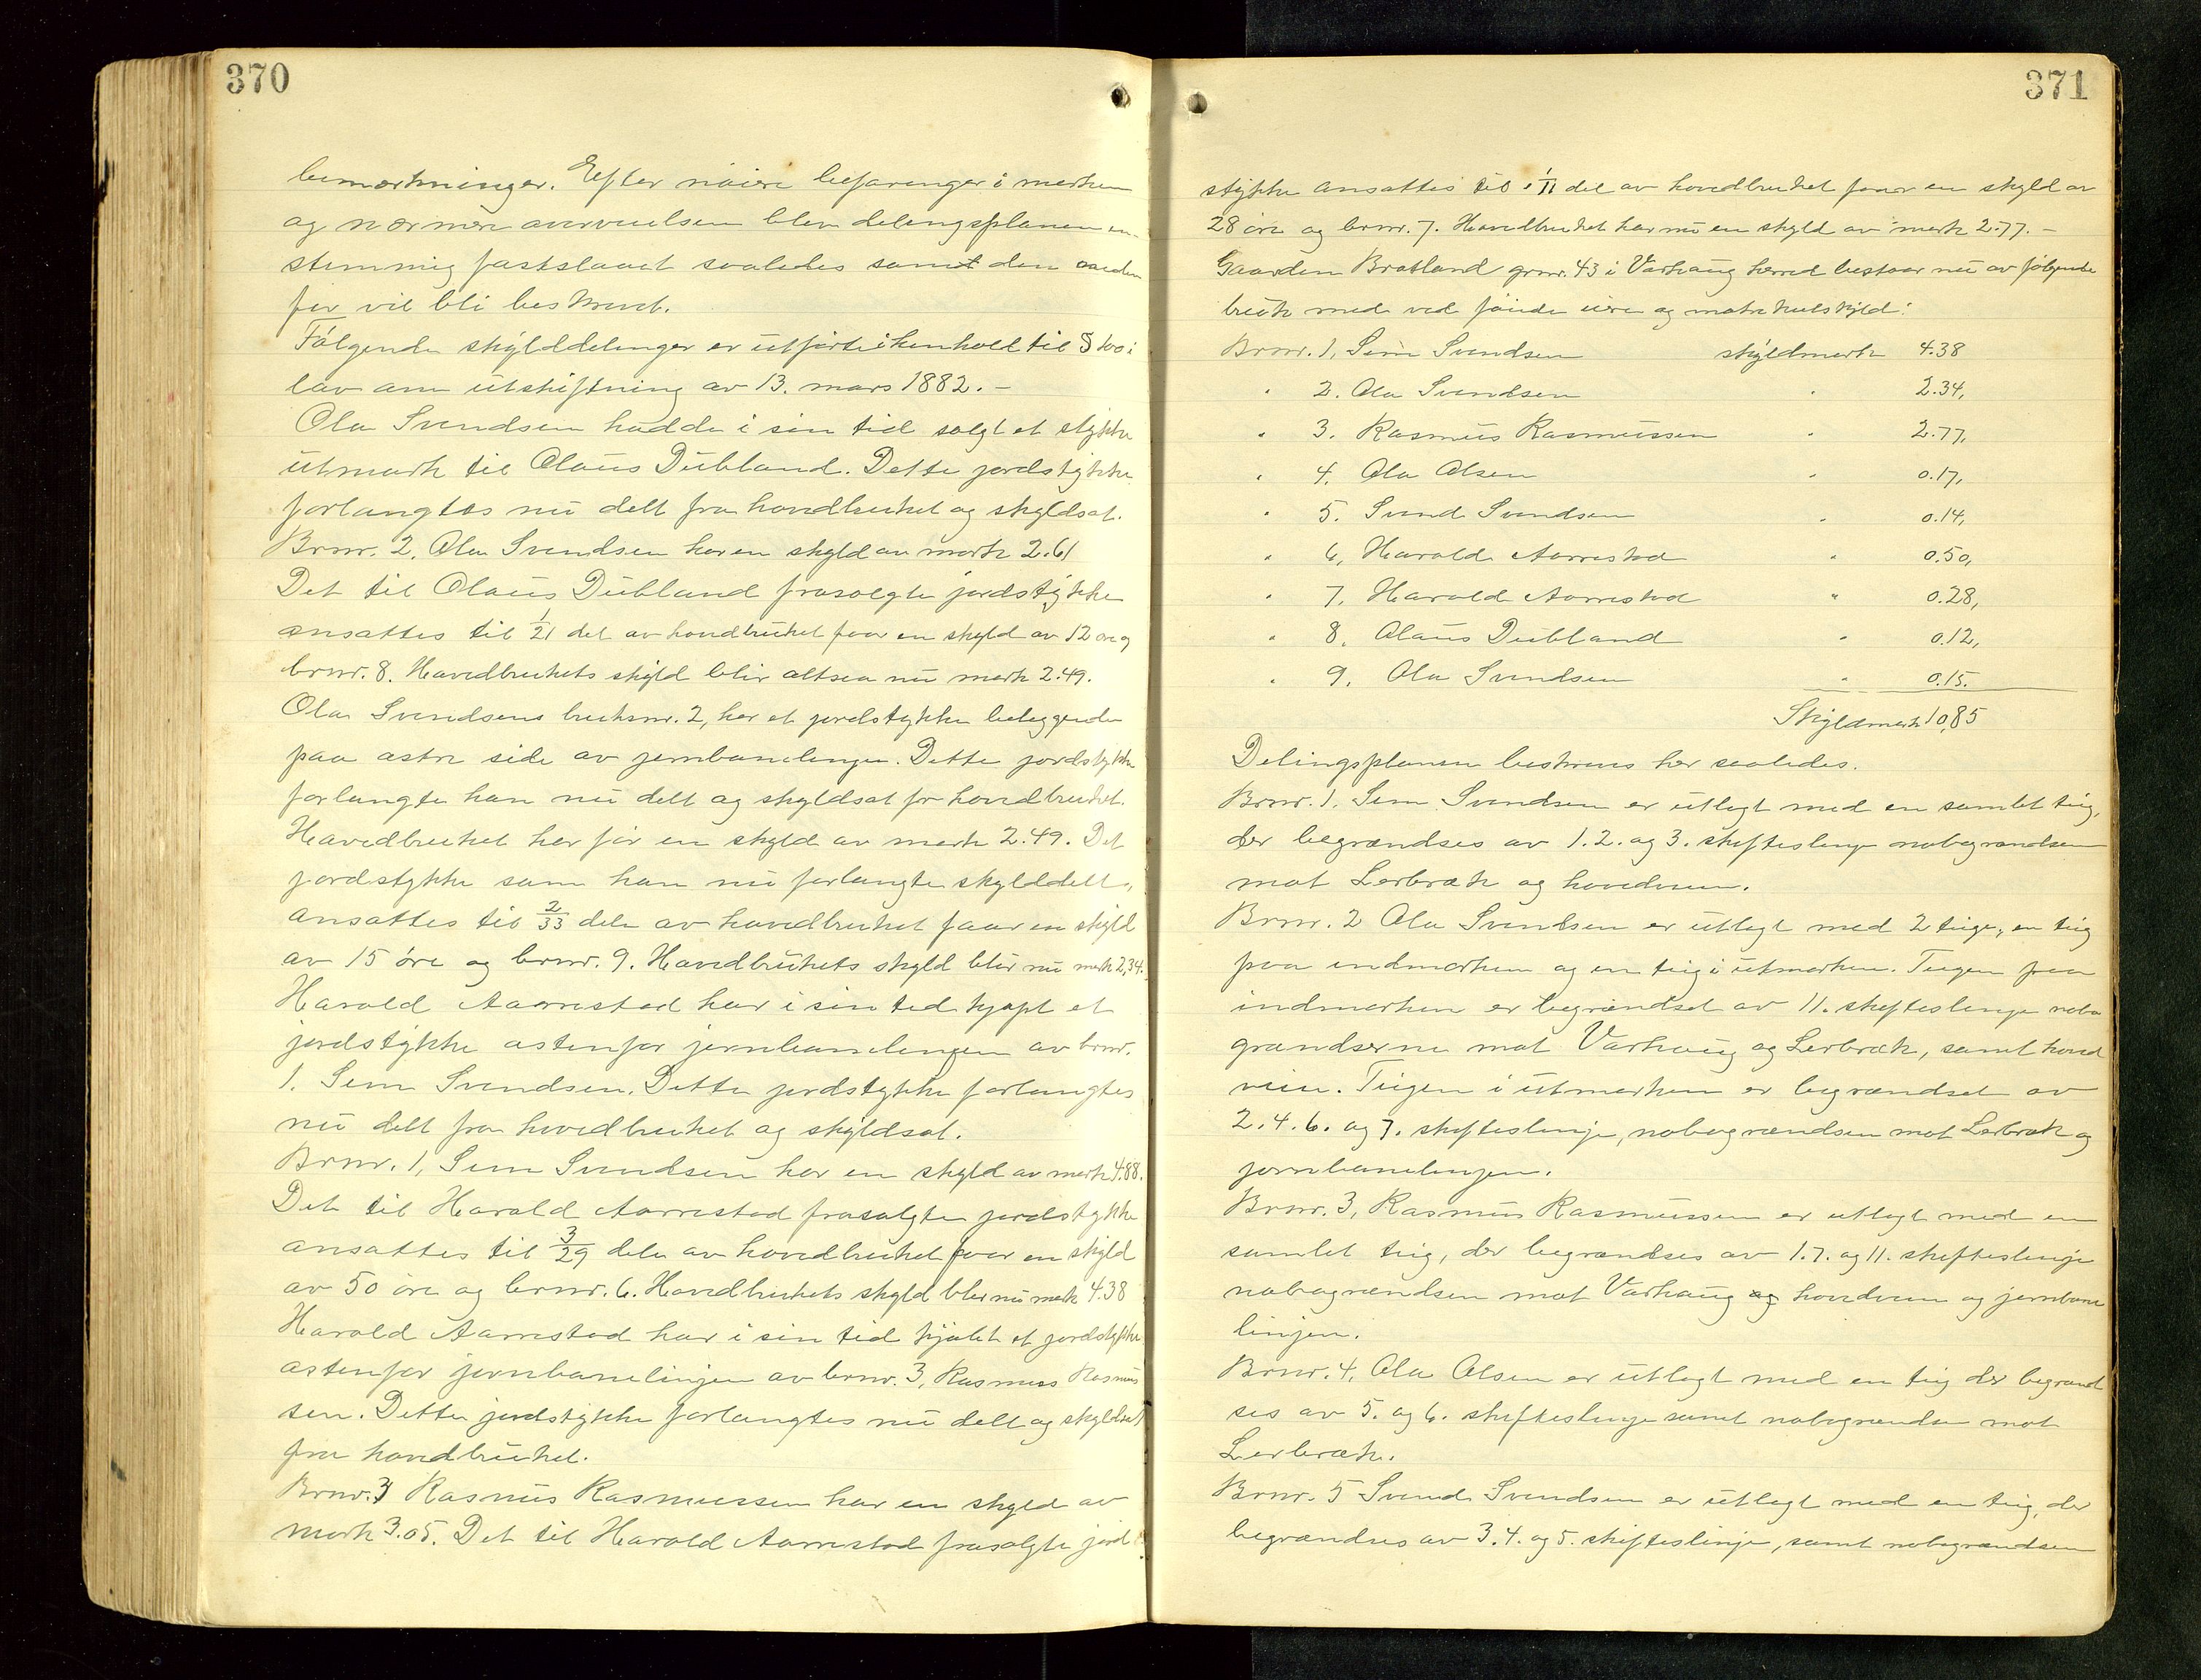 370
bemærkninger. Efter nöiere befaringer i marken
og nærmere overveielsen blev delingsplanen en-
stemmig fastslaaet saaledes samt den
for vil bli beskrevet.
Følgende skylddelinger er utført i henhold til § 100 i
lov om utskiftning av 13. mars 1882. –
Ola Svendsen hadde i sin tid solgt et stykke
utmark til Olaus Dubland. Dette jordstykke
forlangtes nu delt fra hovedbruket og skyldsat.
Brnr. 2. Ola Svendsen har en skyld av mark 2.61
Det til Olaus Dubland frasolgte jordstykke
ansattes til 1/21 del av hovedbruket faar en skyld av 12 øre og
brnr. 8. Hovedbrukets skyld blir altsaa nu mark 2.49.
Ola Svendsens bruksnr. 2, har et jordstykke beliggende
paa østre side av jernbanelinjen. Dette jordstykke
forlangte han nu delt og skyldsat fr hovedbruket.
Hovedbruket har før en skyld av mark 2.49. Det
jordstykke som han nu forlangte skylddelt,
ansattes til 2/33 dele av hovedbruket faar en skyld
av 15 öre og brnr. 9. Hovedbrukets skyld blir nu mark 2,34.
Harald Aarrestad har i sin tid kjøpt et
jordstykke østenfor jernbanelinjen av brnr.
1. Sem Svendsen. Dette jordstykke forlangtes
nu delt fra hovedbruket og skyldsat.
Brnr. 1, Sem Svendsen har en skyld av mark 4.88.
Det til Harald Aarrestad frasolgte jordstykke
ansattes til 3/29 dele av hovedbruket faar en skyld
av 50 öre og brnr. 6. Hovedbrukets skyld blir nu mark 4.38
Harald Aarrestad har i sin tid kjøbt et jordstykke
østenfor jernbanelinjen av brnr. 3, Rasmus Rasmus
sen. Dette jordstykke forlangtes nu delt og skyldsat
fra hovedbruket.
Brnr. 3 Rasmus Rasmussen har en skyld av
mark 3.05. Det til Harald Aarrestad frasolgte jord
371
stykke ansattes til 1/11 del av hovedbruket faar en skyld av
28 öre og brnr. 7. Hovedbruket har nu en skyld av mark 2.77. –
Gaarden Bratland grnr. 43 i Varhaug herred bestaar nu av følgende
bruk med ved föiede eiere og matrikulskyld:
Brnr. 1, Sem Svendsen skyldmark 4.38
" 2. Ola Svendsen " 2.34,
" 3. Rasmus Rasmussen " 2.77,
" 4. Ola Olsen " 0.17,
" 5. Svend Svendsen " 0.14,
" 6, Harald Aarrestad " 0.50,
" 7, Harald Aarrestad " 0.28,
" 8. Olaus Dubland " 0.12,
" 9. Ola Svendsen " 0.15.
Skyldmark 10,85
Delingsplanen beskrives her saaledes.
Brnr. 1. Sem Svendsen er utlagt med en samlet teig,
der begrændses av 1. 2. og 3. skifteslinje nabogrændsen
mot Lerbræk og hovedveien.
Brnr. 2 Ola Svendsen er utlagt med 2 teige, en teig
paa indmarken og en teig i utmarken. Teigen paa
indmarken er begrændset av 11. skifteslinje nabo
grændserne mot Varhaug og Lerbræk, samt hoved
veien. Teigen i utmarken er begrændset av
2. 4. 6. og 7. skifteslinje, nabogrændsen mot Lerbræk og
jernbanelinjen.
Brnr. 3, Rasmus Rasmussen er utlagt med en
samlet teig, der begrændses av 1. 7. og 11. skifteslinje
nabogrændsen mot Varhaug og hovedveien og jernbane
linjen.
Brnr. 4. Ola Olsen er utlagt med en teig der begrænd
ses av 5. og 6. skifteslinje samt nabogrændsen mot
Lerbræk.
Brnr. 5 Svend Svendsen er utlagt med en teig, der
begrændses av 3. 4. og 5. skifteslinje, samt nabogrændsen